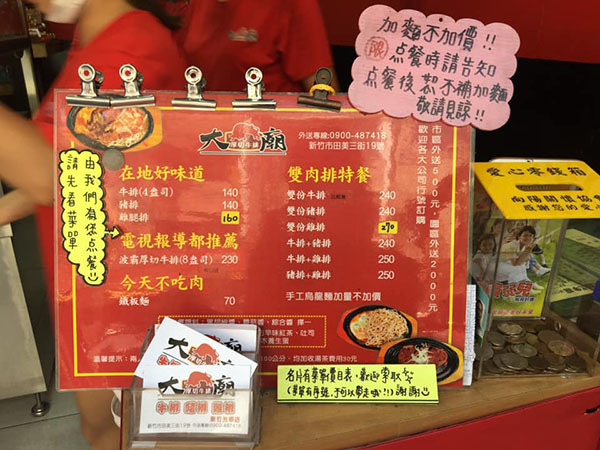 加麵不加價!!
點餐時請告知
點餐後恕不補加麵
敬請見諒!!
由我們為您點餐
請先看菜單
大廟
厚切牛排
外送專線:0900-487418
新竹市田美三街19號
在地好味道
牛排(4盎司) 140
豬排 140
雞腿排 160
電視報導都推薦
波霸厚切牛排(8盎司) 230
今天不吃肉
鐵板麵 70
雙肉排特餐
雙份牛排 240
雙份豬排 240
雙份雞排 270
牛排+豬排 240
牛排+雞排 250
豬排+雞排 250
手工烏龍麵加量不加價
市區外送500元,園區外送2000元
歡迎各大公司行號訂購
均加收湯茶費用30元
名片有菜單價目表,歡迎拿取
謝謝
大廟
厚切牛排
牛排 豬排 雞排
新竹市田美三街19號
愛心零錢箱
向陽關懷協會
感謝您的愛心